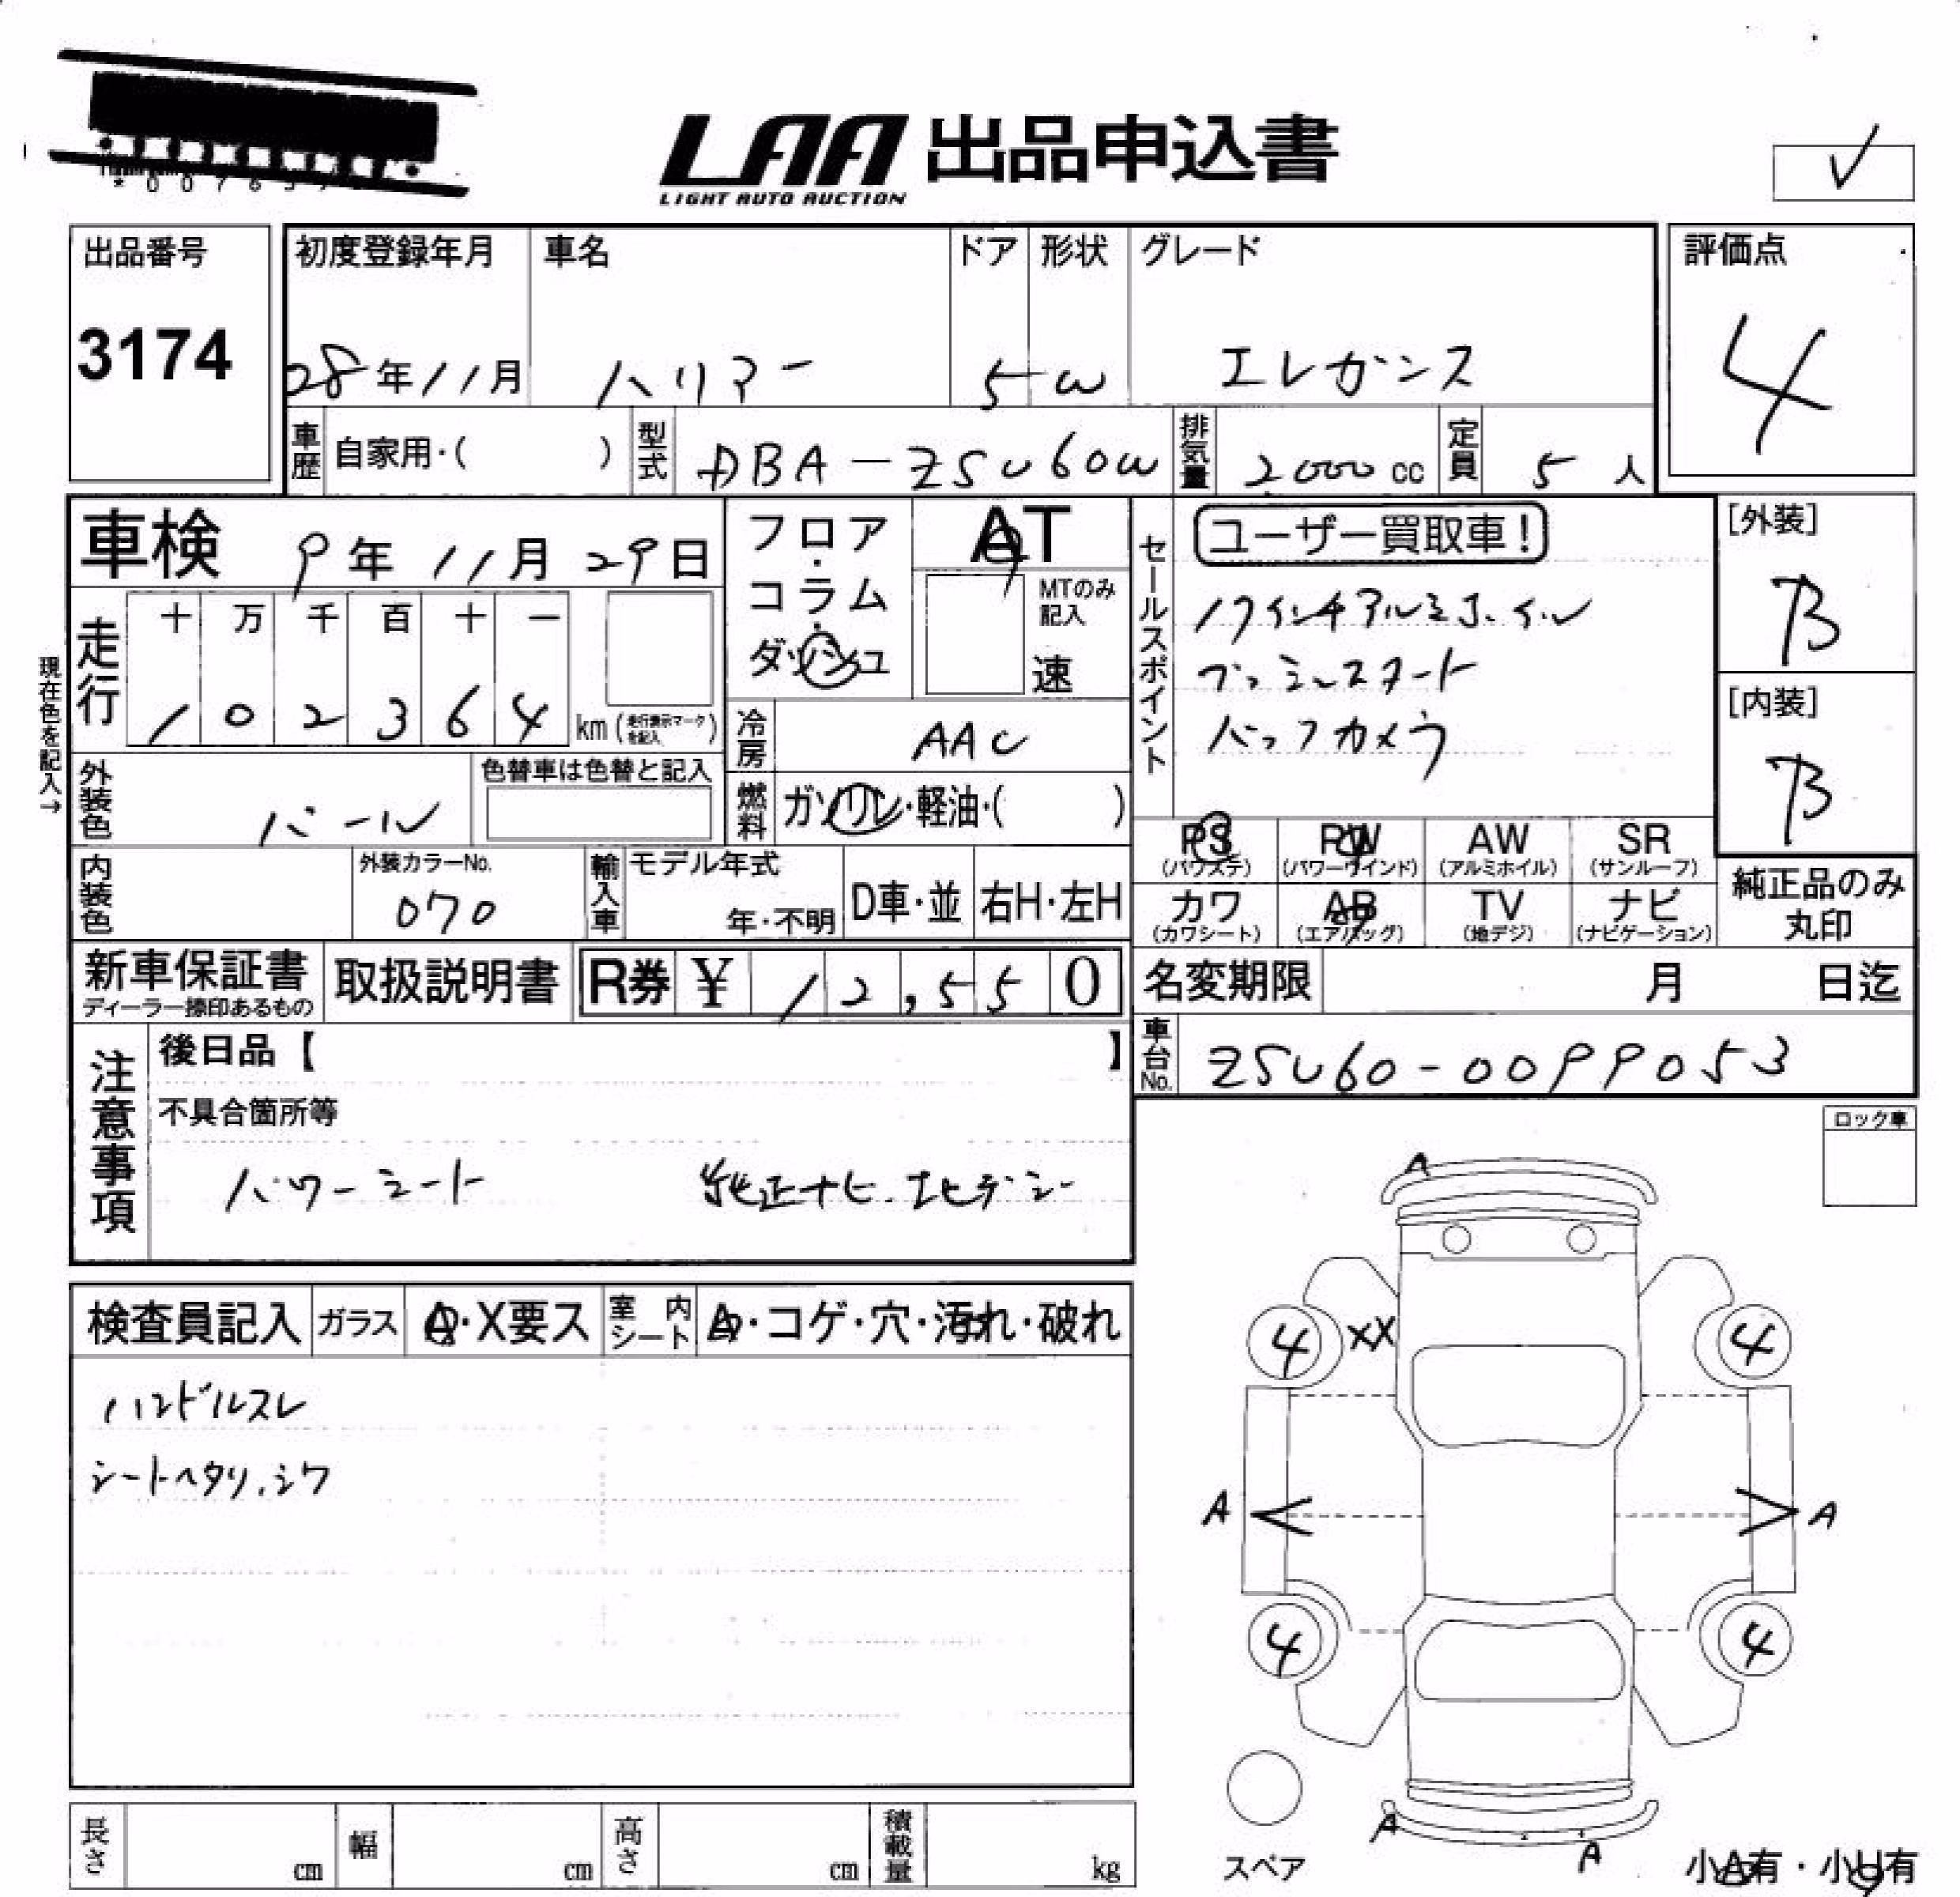 LAA 出品申込書
LIGHT AUTO AUCTION
✓
出品番号
3174
初度登録年月 車名 ドア 形状 グレード
28年11月 ハリアー 5 W エレガンス
評価点
4
車歴 自家用・( ) 型式 DBA-ZSU60W 排気量 2000 cc 定員 5 人
車検 9年11月29日
フロア・コラム・ダッシュ
AT
MTのみ記入
速
セールスポイント
ユーザー買取車!
17インチアルミホイル
プッシュスタート
バックカメラ
[外装]
B
[内装]
B
現在色を記入→
走行 十 万 千 百 十 一
1 0 2 3 6 4 km (走行表示マークを記入)
冷房 AAC
外装色 パール 色替車は色替と記入
燃料 ガソリン・軽油・( )
PS (パワステ) PW (パワーウインド) AW (アルミホイル) SR (サンルーフ)
カワ (カワシート) AB (エアバッグ) TV (地デジ) ナビ (ナビゲーション)
純正品のみ丸印
内装色 外装カラーNo. 070 輸入車 モデル年式 年・不明 D車・並 右H・左H
新車保証書 ディーラー捺印あるもの 取扱説明書 R券 ¥ 12,550
名変期限 月 日迄
車台No. ZSU60-0099053
注意事項
後日品【 】
不具合箇所等
パワーシート 純正ナビ、ナビデシー
ロック車
検査員記入 ガラス A・X要ス 室内シート A・コゲ・穴・汚れ・破れ
ハンドルスレ
シートヘタリ、シワ
A
4 XX 4
A A
4 4
A A
スペア
小A有・小U有
長さ cm 幅 cm 高さ cm 積載量 kg